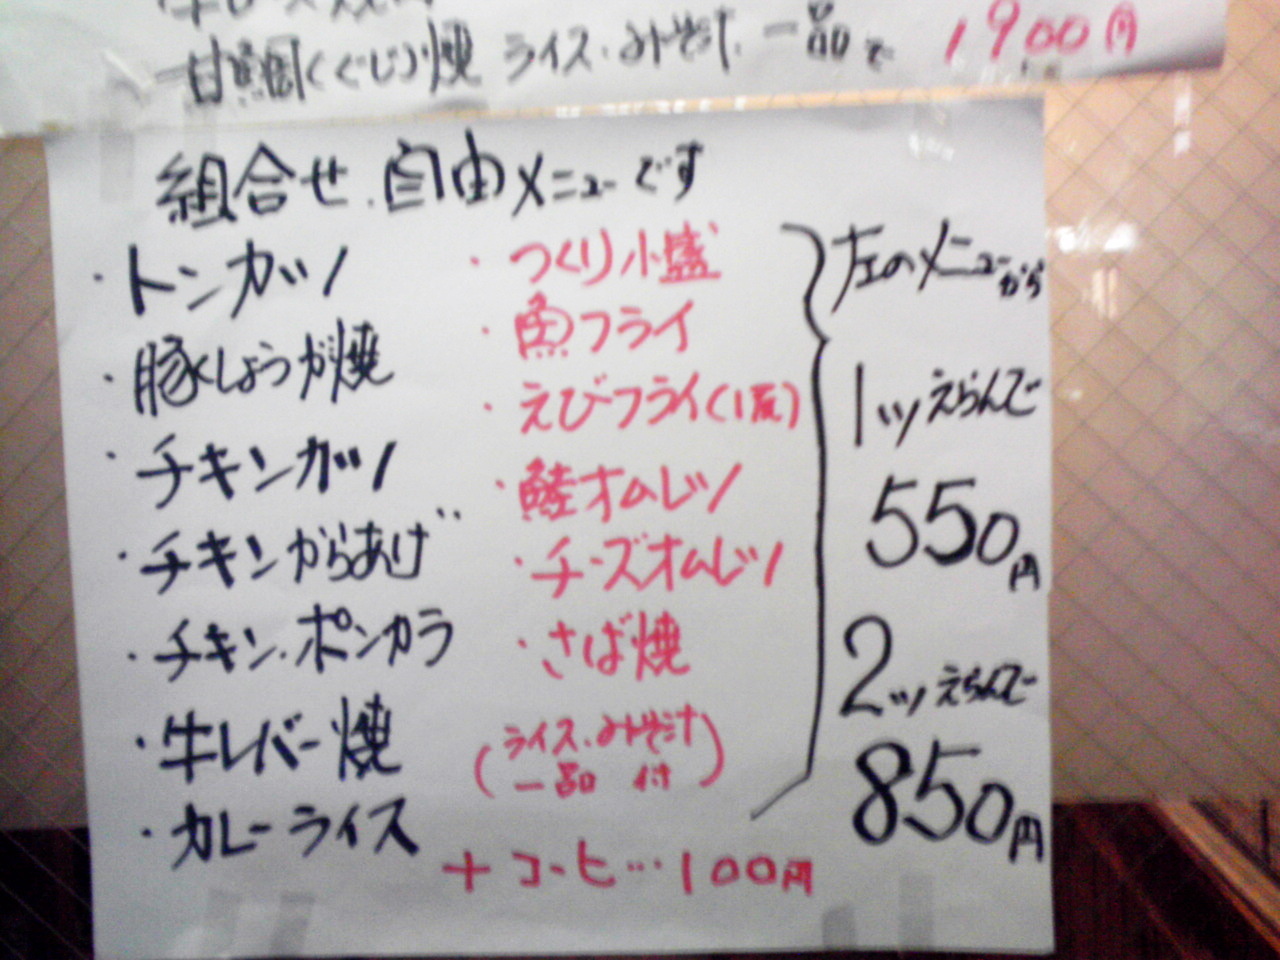 甘鯛(ぐじ)焼 ライス.みそ汁.一品で 1900円
組合せ.自由メニューです
・トンカツ
・豚しょうが焼
・チキンカツ
・チキンからあげ
・チキン.ポンカラ
・牛レバー焼
・カレーライス
・つくり小盛
・魚フライ
・えびフライ(1尾)
・鮭オムレツ
・チーズオムレツ
・さば焼
(ライス.みそ汁
一品 付)
+コーヒ…100円
左のメニューから
1ッえらんで
550円
2ッえらんで
850円